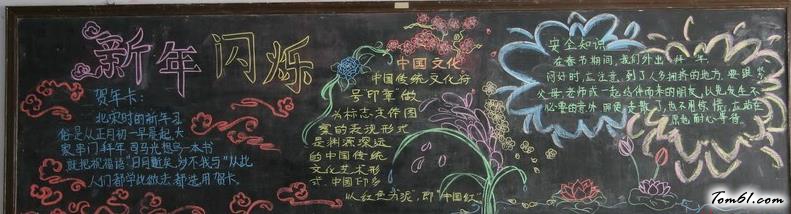 新年闪烁
贺年卡:
北宋时的新年习
俗是从正月初一早晨起,大
家串门拜年
司马光想
一本书
就把祝福语"日月逝矣,岁不我与"
从此
人们都学此做法都选用贺卡。
中国文化
中国传统文化符
号"印章"做
为标志主体图
案的表现形式
是渊源深远
的中国传统
文化艺术形
式.中国印多
以红色为泥,即"中国红"
安全知识
在春节期间,我们外出拜年
问好时,应注意,到了人多拥挤的地方,要跟紧
父母,老师或一起结伴而来的朋友,以免发生不
必要的意外.即使走散了,也不用惊慌,应站在
原地耐心等待。
Tom61.com